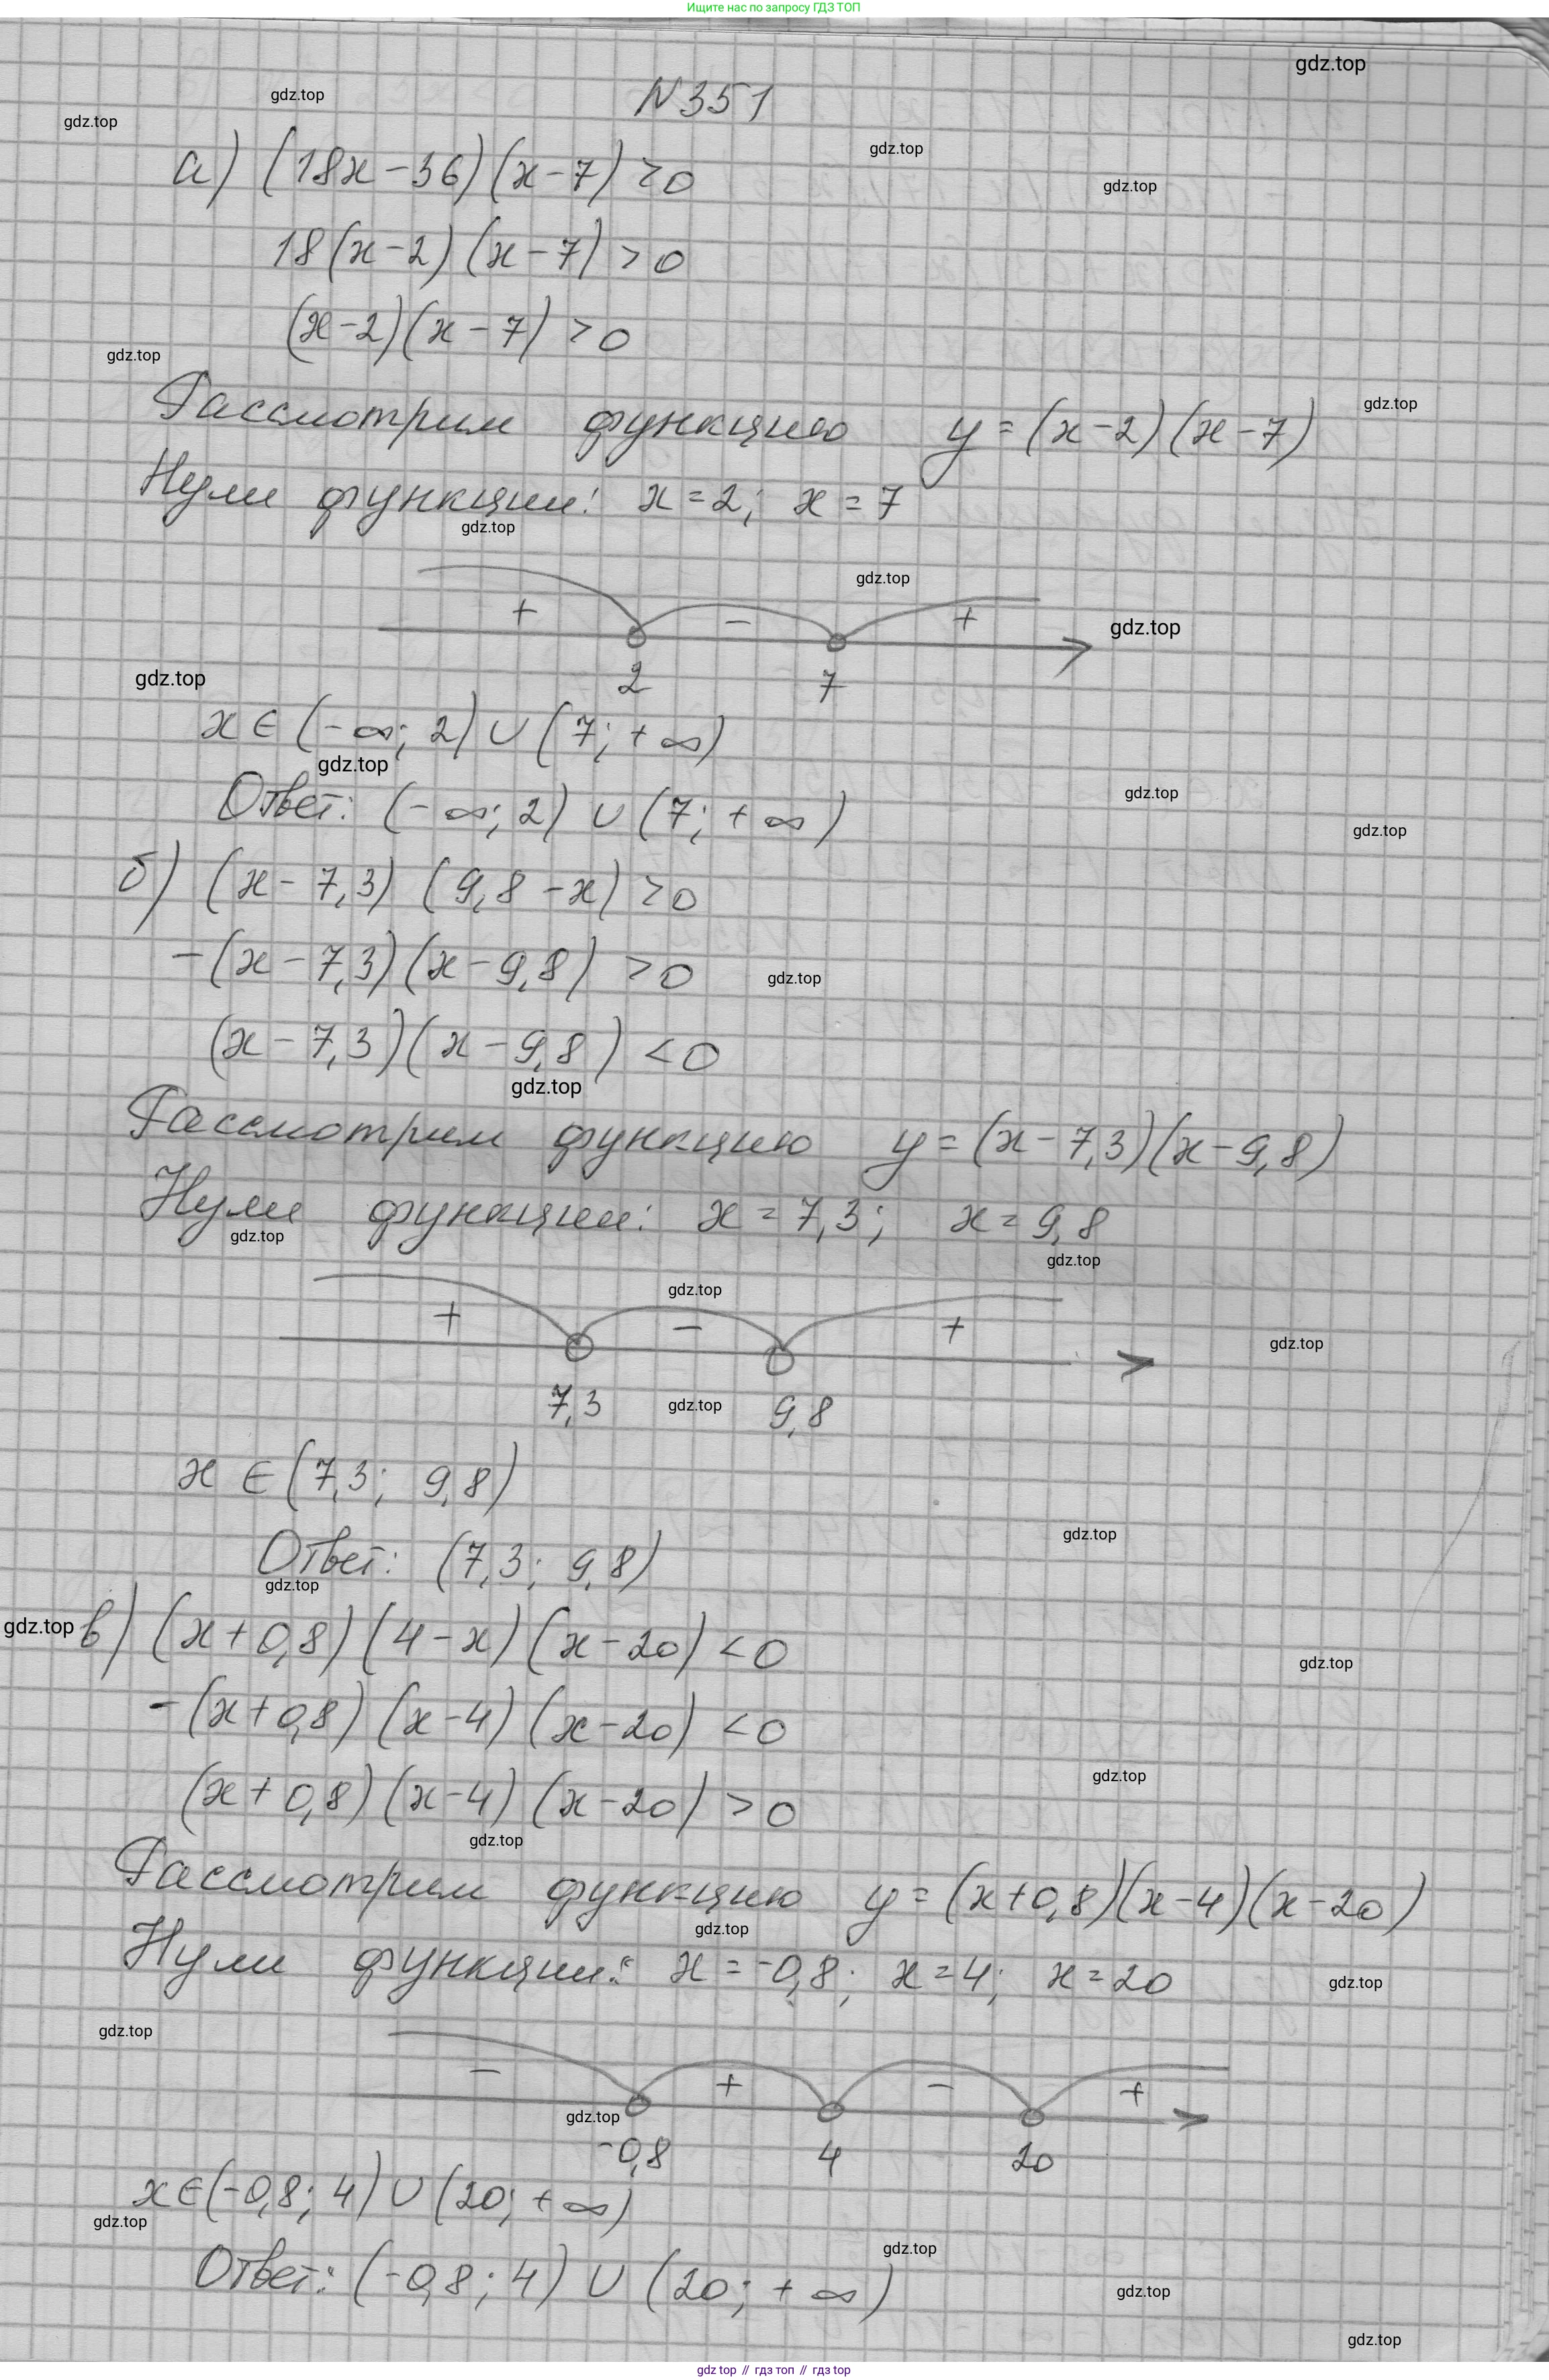 Ищите нас по запросу ГДЗ ТОП
gdz.top
gdz.top
N351
gdz.top
gdz.top
а) (18x-36)(x-7)>0
gdz.top
18(x-2)(x-7)>0
(x-2)(x-7)>0
gdz.top
gdz.top
Рассмотрим функцию y=(x-2)(x-7)
Нули функции: x=2; x=7
gdz.top
gdz.top
+ - +
gdz.top
2 7
gdz.top
x∈(-∞; 2)∪(7; +∞)
gdz.top
gdz.top
Ответ: (-∞; 2)∪(7; +∞)
gdz.top
б) (x-7,3)(9,8-x)>0
-(x-7,3)(x-9,8)>0
gdz.top
(x-7,3)(x-9,8)<0
gdz.top
Рассмотрим функцию y=(x-7,3)(x-9,8)
Нули функции: x=7,3; x=9,8
gdz.top
gdz.top
gdz.top
+ - +
gdz.top
7,3 9,8
gdz.top
x∈(7,3; 9,8)
gdz.top
Ответ: (7,3; 9,8)
gdz.top
gdz.top
в) (x+0,8)(4-x)(x-20)<0
gdz.top
-(x+0,8)(x-4)(x-20)<0
gdz.top
(x+0,8)(x-4)(x-20)>0
gdz.top
Рассмотрим функцию y=(x+0,8)(x-4)(x-20)
gdz.top
Нули функции: x=-0,8; x=4; x=20
gdz.top
gdz.top
- + - +
gdz.top
-0,8 4 20
x∈(-0,8; 4)∪(20; +∞)
gdz.top
gdz.top
Ответ: (-0,8; 4)∪(20; +∞)
gdz.top
gdz.top
gdz top // гдз топ // gdz top